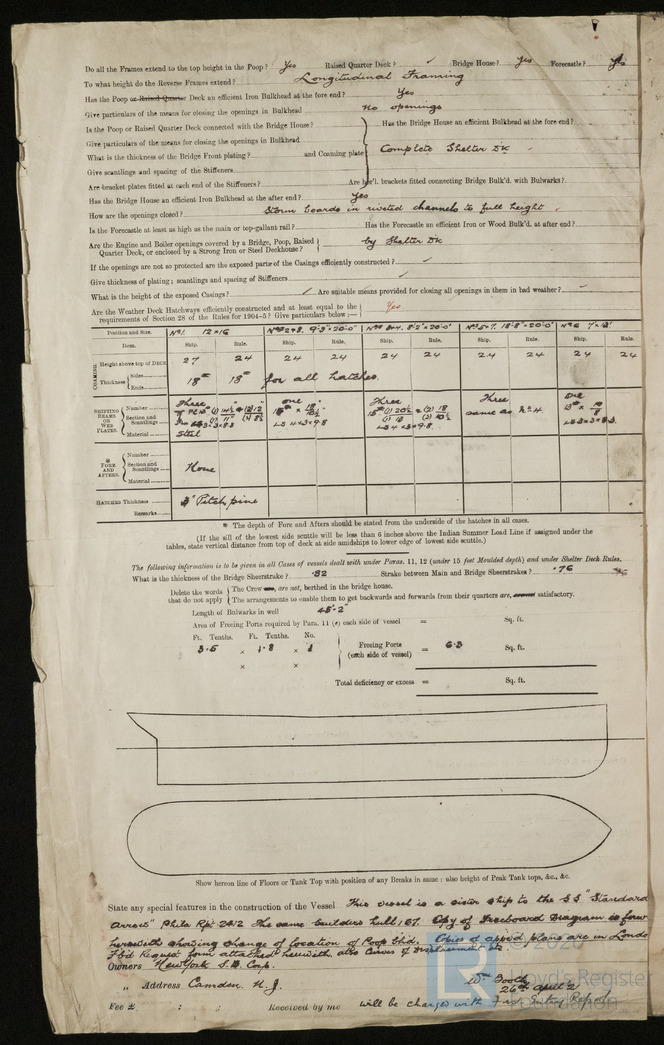 Do all the Frames extend to the top height in the Poop? Yes Raised Quarter Deck? ✓ Bridge House? Yes Forecastle? Yes
To what height do the Reverse Frames extend? Longitudinal Framing
Has the Poop or Raised Quarter Deck an efficient Iron Bulkhead at the fore end? Yes
Give particulars of the means for closing the openings in Bulkhead No openings
Is the Poop or Raised Quarter Deck connected with the Bridge House? Has the Bridge House an efficient Bulkhead at the fore end?
Give particulars of the means for closing the openings in Bulkhead
What is the thickness of the Bridge Front plating? and Coaming plate Complete Shelter Dk
Give scantlings and spacing of the Stiffeners
Are bracket plates fitted at each end of the Stiffeners? Are hor'l. brackets fitted connecting Bridge Bulk'd. with Bulwarks?
Has the Bridge House an efficient Iron Bulkhead at the after end? Yes
How are the openings closed? Storm boards in riveted channels to full height
Is the Forecastle at least as high as the main or top-gallant rail? Has the Forecastle an efficient Iron or Wood Bulk'd. at after end?
Are the Engine and Boiler openings covered by a Bridge, Poop, Raised Quarter Deck, or enclosed by a Strong Iron or Steel Deckhouse? by Shelter Dk
If the openings are not so protected are the exposed parts of the Casings efficiently constructed? ✓
Give thickness of plating; scantlings and spacing of Stiffeners ✓
What is the height of the exposed Casings? ✓ Are suitable means provided for closing all openings in them in bad weather? ✓
Are the Weather Deck Hatchways efficiently constructed and at least equal to the requirements of Section 28 of the Rules for 1904-5? Give particulars below:— Yes
Position and Size. No 1. 12 x 16 Nos 2 & 8. 9'-3" x 20'-0" Nos 3 & 4. 8'-2" x 20'-0" No 5 & 7. 18'-8" x 20'-0" No 6
Item. Ship. Rule. Ship. Rule. Ship. Rule. Ship. Rule. Ship. Rule.
COAMING. Height above top of DECK 27 24 24 24 24 24 24 24 24 24
Thickness Sides Ends 18" 18" for all hatches
SHIFTING BEAMS OR WEB PLATES. Number Three one Three Three one
Section and Scantlings same as No 4
Material Steel
* FORE AND AFTERS. Number
Section and Scantlings None
Material
HATCHES Thickness 3" Pitch pine
Remarks
* The depth of Fore and Afters should be stated from the underside of the hatches in all cases.
(If the sill of the lowest side scuttle will be less than 6 inches above the Indian Summer Load Line if assigned under the
tables, state vertical distance from top of deck at side amidships to lower edge of lowest side scuttle.)
The following information is to be given in all Cases of vessels dealt with under Paras. 11, 12 (under 15 feet Moulded depth) and under Shelter Deck Rules.
What is the thickness of the Bridge Sheerstrake? .82 Strake between Main and Bridge Sheerstrakes? .76
Delete the words that do not apply The Crew are, are not, berthed in the bridge house.
The arrangements to enable them to get backwards and forwards from their quarters are, are not satisfactory.
Length of Bulwarks in well 45'-2"
Area of Freeing Ports required by Para. 11 (e) each side of vessel = Sq. ft.
Ft. Tenths. Ft. Tenths. No.
3.5 x 1.8 x 1 Freeing Ports (each side of vessel) = 6.3 Sq. ft.
x x
Total deficiency or excess = Sq. ft.
Show hereon line of Floors or Tank Top with position of any Breaks in same: also height of Peak Tank tops, &c., &c.
State any special features in the construction of the Vessel This vessel is a sister ship to the SS "Standard
Arrow" Phila Rpt 2412 The same builders hull 187. Copy of Freeboard Diagram is forw
herewith showing change of location of Poop Bhd. Copies of appvd plans are in Londo
F'b'd Request form attached herewith, also Curves of Displacement etc
Owners New York S.B. Corp.
" Address Camden. N.J. Wm Booth
26th April 2
Fee £ : : Received by me will be charged with First Entry Report
© 2020
Lloyd's Register
Foundation